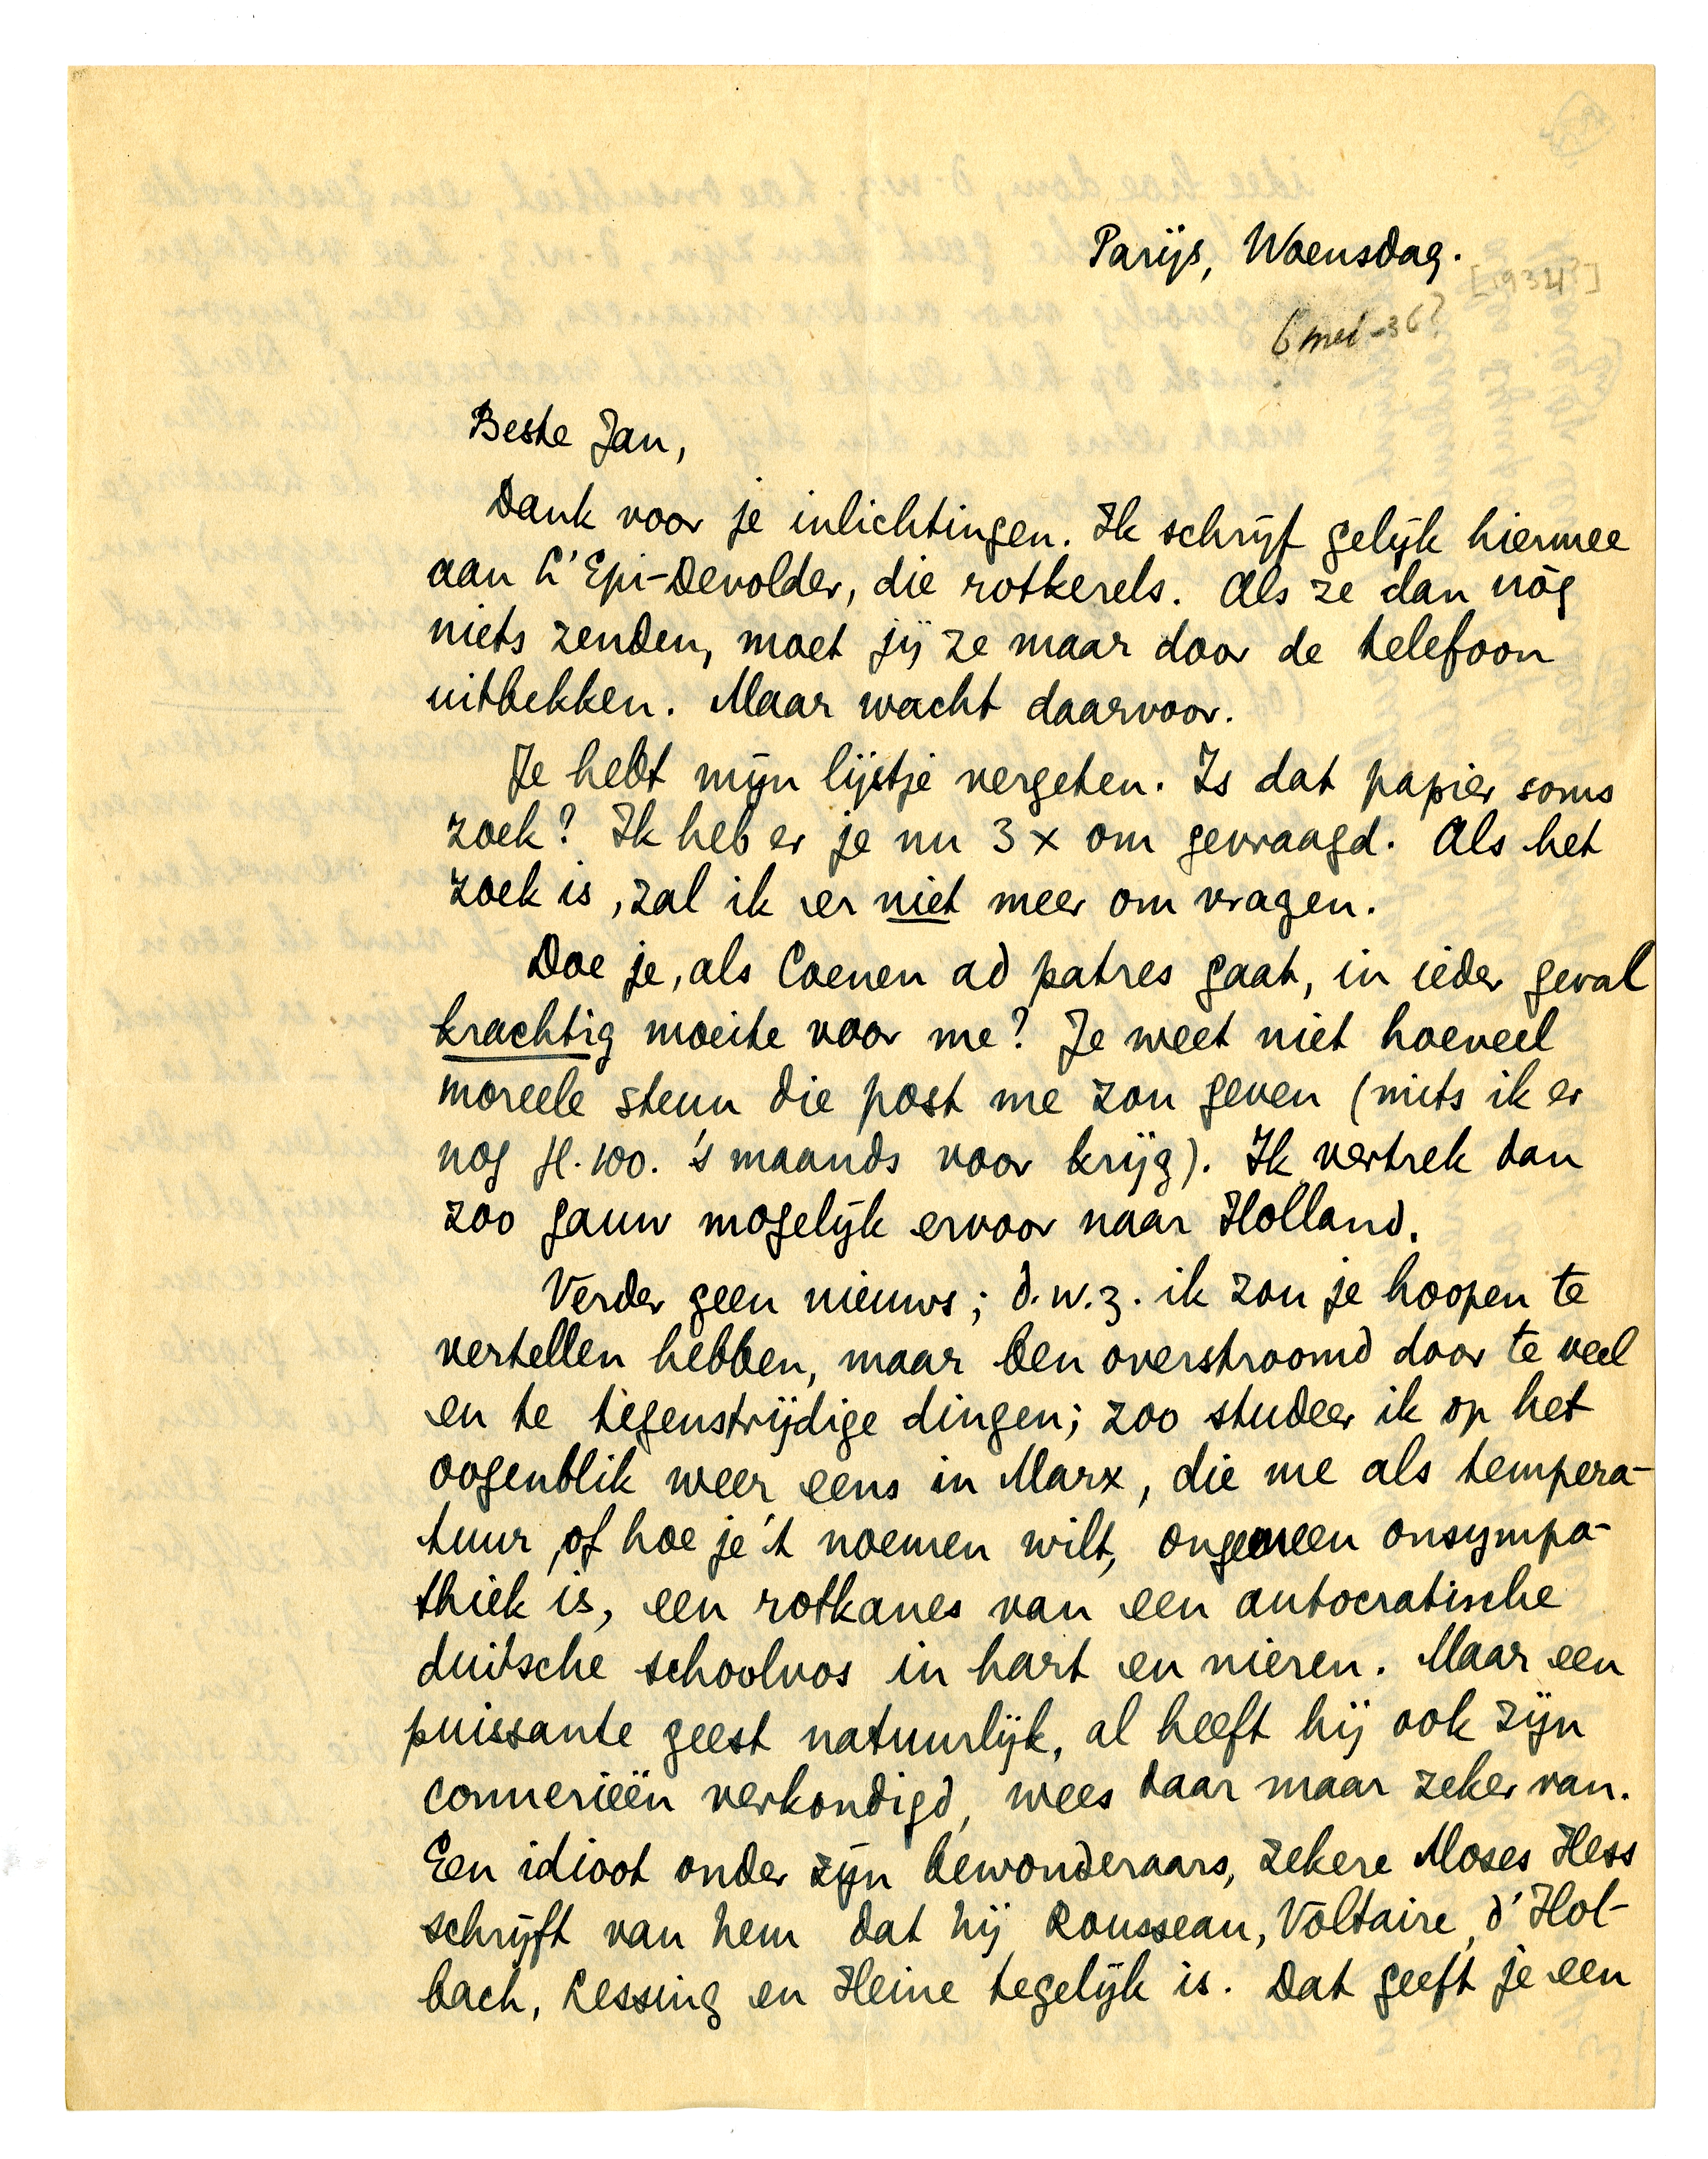 Parijs, Woensdag.
[1934?]
6 mei -36?
Beste Jan,
Dank voor je inlichtingen. Ik schrijf gelijk hiermee
aan L'Epi-Devolder, die rotkerels. Als ze dan nòg
niets zenden, moet jij ze maar door de telefoon
uitbekken. Maar wacht daarvoor.
Je hebt mijn lijstje vergeten. Is dat papier soms
zoek? Ik heb er je nu 3 x om gevraagd. Als het
zoek is, zal ik er niet meer om vragen.
Doe je, als Coenen ad patres gaat, in ieder geval
krachtig moeite voor me? Je weet niet hoeveel
moreele steun die post me zou geven (mits ik er
nog fl. 100. 's maands voor krijg). Ik vertrek dan
zoo gauw mogelijk ervoor naar Holland.
Verder geen nieuws; d.w.z. ik zou je hoopen te
vertellen hebben, maar ben overstroomd door te veel
en te tegenstrijdige dingen; zoo studeer ik op het
oogenblik weer eens in Marx, die me als tempera-
tuur, of hoe je 't noemen wilt, ongemeen onsympa-
thiek is, een rotkanes van een autocratische
duitsche schoolvos in hart en nieren. Maar een
puissante geest natuurlijk, al heeft hij ook zijn
connerieën verkondigd, wees daar maar zeker van.
Een idioot onder zijn bewonderaars, zekere Moses Hess
schrijft van hem dat hij Rousseau, Voltaire, d'Hol-
bach, Lessing en Heine tegelijk is. Dat geeft je een